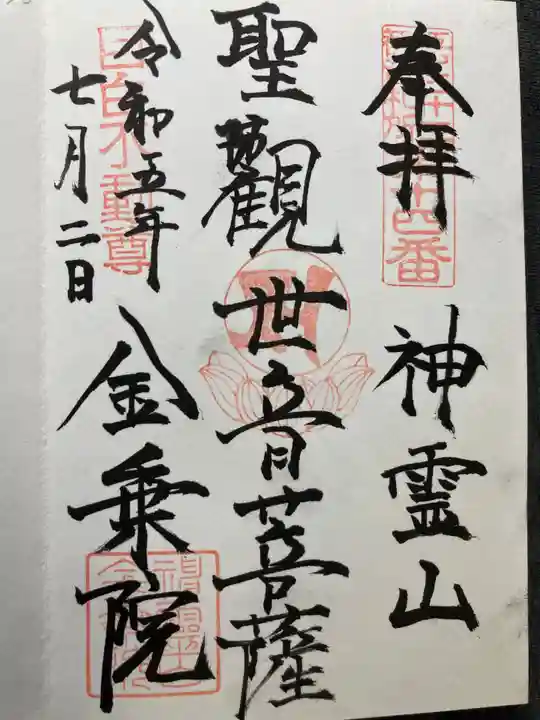 奉拝
神霊山
聖觀世音菩薩
令和五年
七月二日
金乗院
目白不動尊